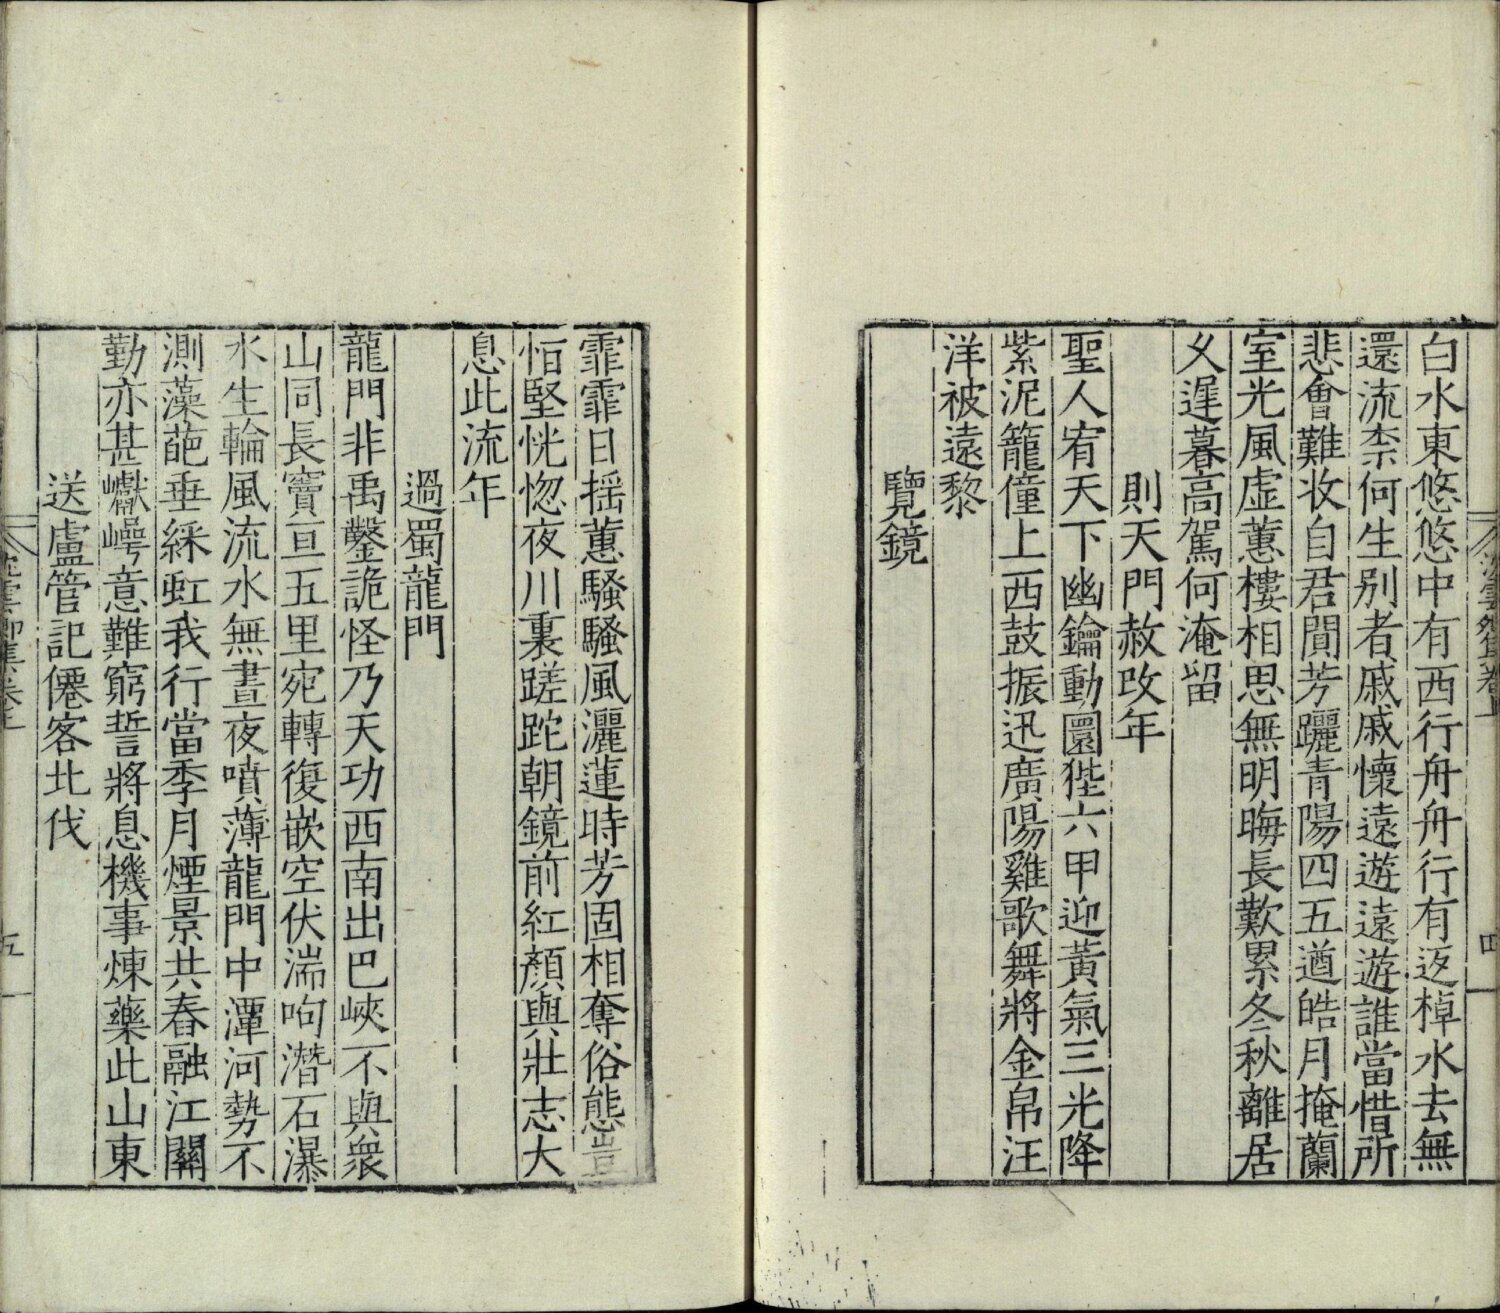 白水東悠悠中有西行舟舟行有返棹水去無
還流柰何生别者戚戚懷遠遊遠遊誰當惜所
悲會難收自君間芳躧青陽四五遒皓月掩蘭
室光風虚蕙樓相思無明晦長歎累冬秋離居
久遲暮高駕何淹留
則天門赦改年
聖人宥天下幽鑰動圜狴六甲迎黃氣三光降
紫泥籠僮上西鼓振迅廣陽雞歌舞將金帛汪
洋被遠黎
覽鏡
霏霏日揺蕙騷騷風灑蓮時芳固相奪俗態豈
恒堅恍惚夜川裏蹉跎朝鏡前紅顏與壯志大
息此流年
過蜀龍門
龍門非禹鑿詭怪乃天功西南出巴峽不與衆
山同長竇亘五里宛轉復嵌空伏湍呴潛石瀑
水生輪風流水無晝夜噴薄龍門中潭河勢不
測藻葩垂綵虹我行當季月煙景共春融江關
勤亦甚巘崿意難窮誓將息機事煉藥此山東
送盧管記僊客北伐
五